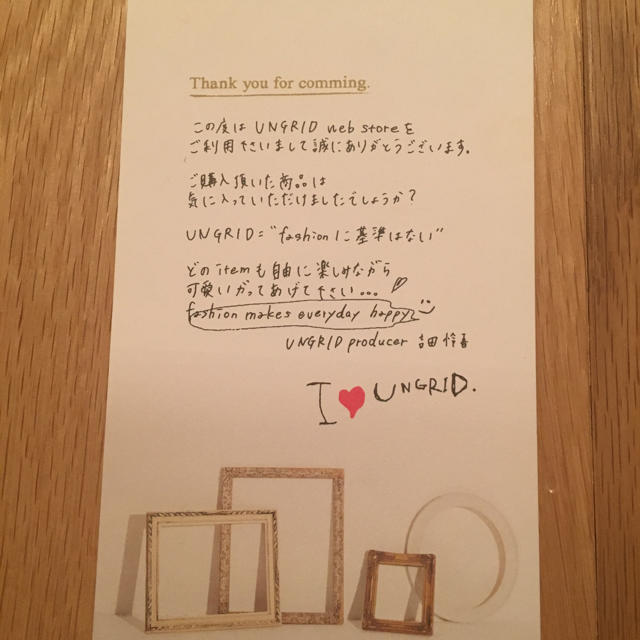 Thank you for comming.
この度は UNGRID web storeを
ご利用下さいまして誠にありがとうございます。
ご購入頂いた商品は
気に入っていただけましたでしょうか?
UNGRID="fashionに基準はない"
どのitemも自由に楽しみながら
可愛いがってあげて下さい...
fashion makes everyday happy
UNGRID producer 吉田 怜香
I ♥ UNGRID.